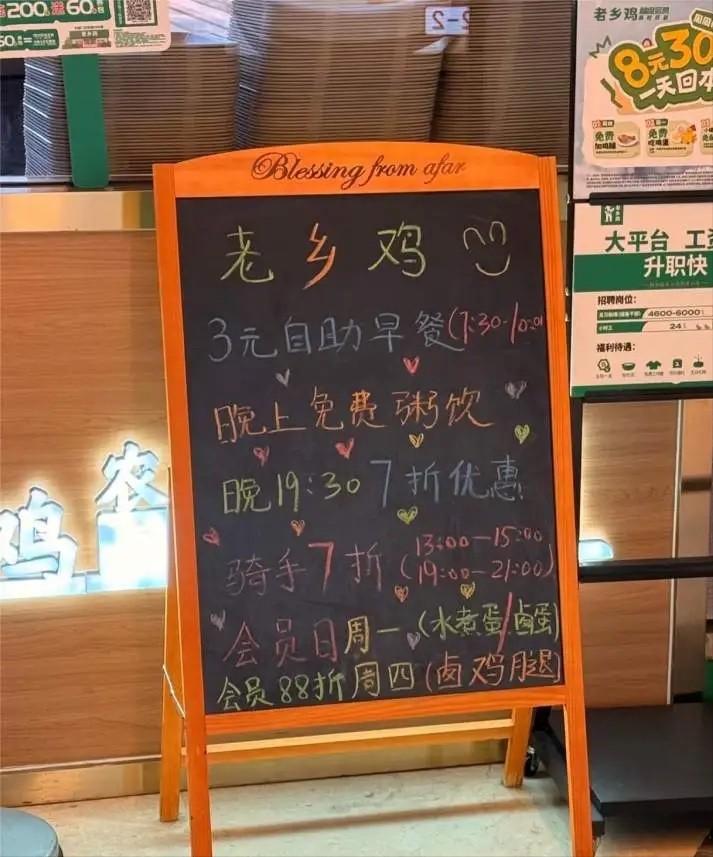 200 送 60
60元
2-2
老乡鸡
8元30
一天回本
免费
免费
Blessing from afar
老乡鸡
3元自助早餐(7:30-10:00
晚上免费粥饮
晚19:30 7折优惠
骑手7折(13:00-15:00
19:00-21:00)
会员日周一(水煮蛋/卤蛋)
会员88折周四(卤鸡腿)
大平台 工
升职快
招聘岗位:
4600-6000
小时工 24
福利待遇:
鸡 农